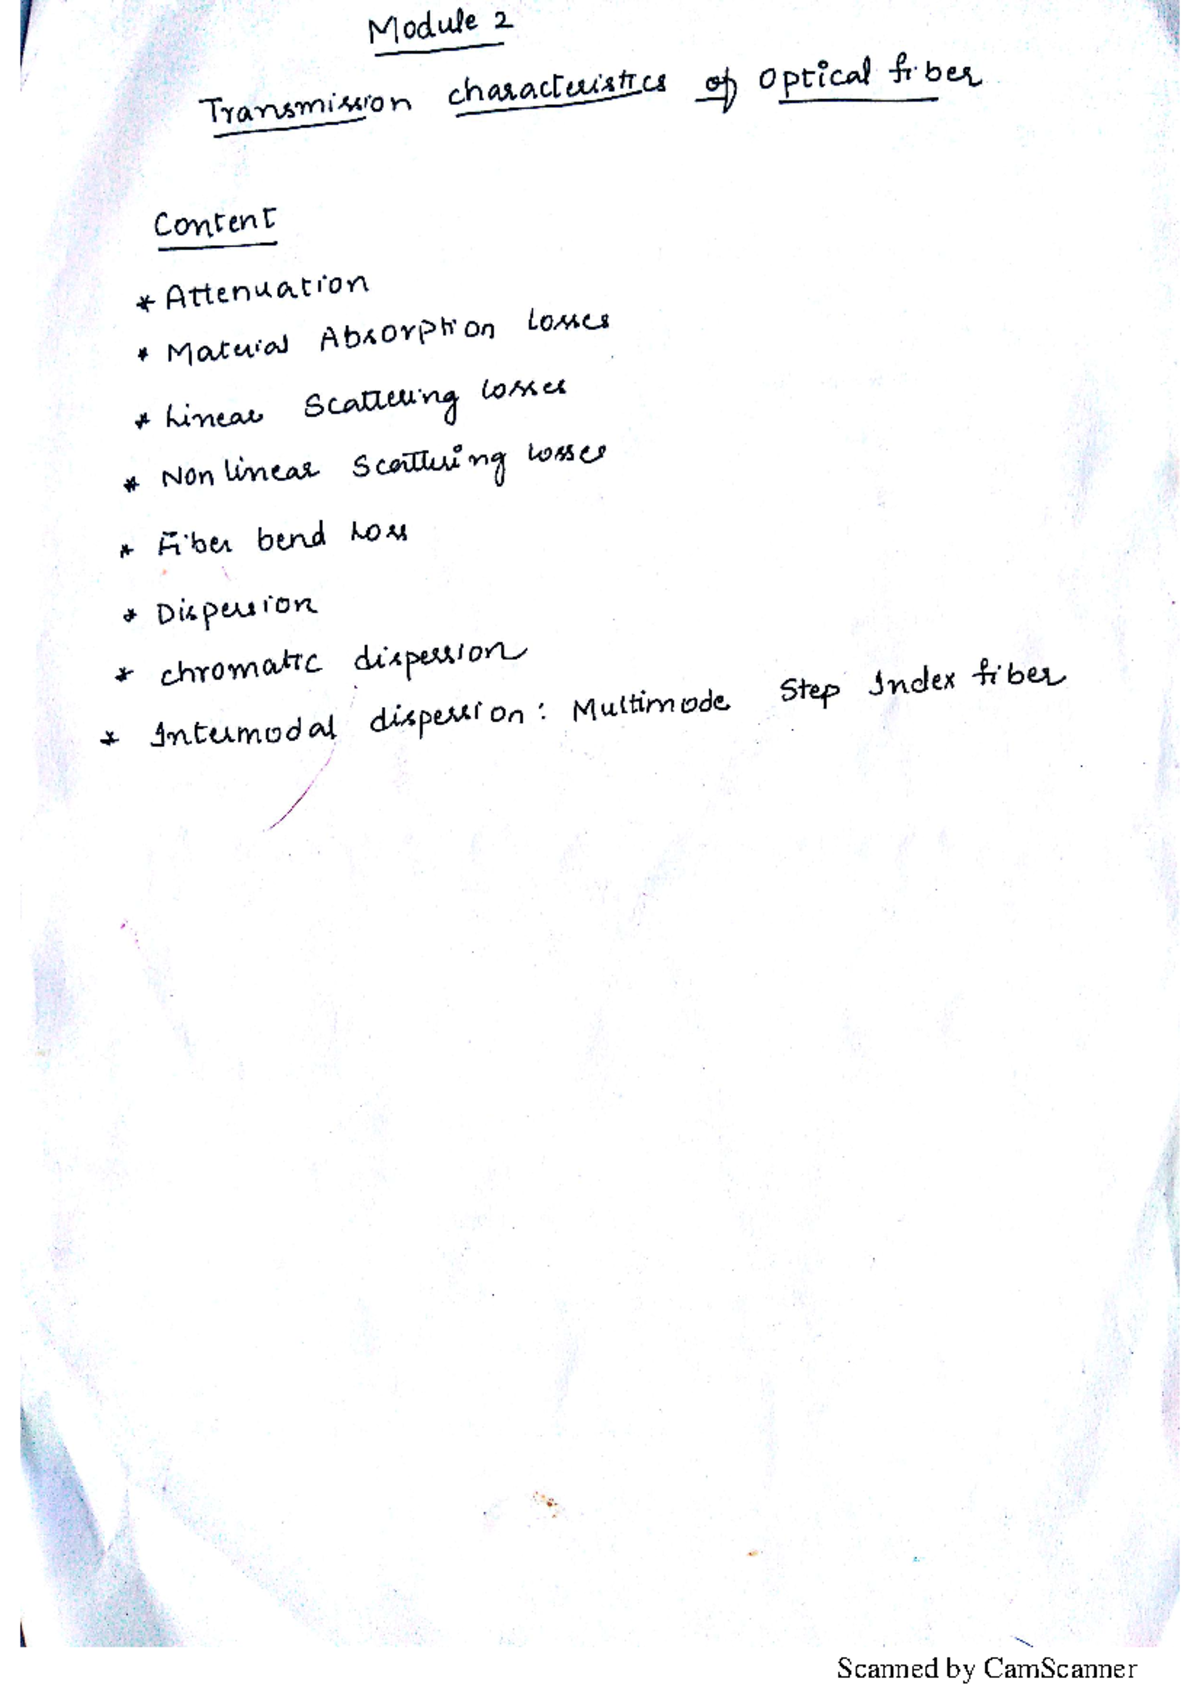 Module 2
Transmission characteristics of Optical fiber
Content
* Attenuation
* Material Absorption Losses
* Linear Scattering Losses
* Non linear Scattering Losses
* Fiber bend Loss
* Dispersion
* chromatic dispersion
* Intermodal dispersion: Multimode Step Index fiber
Scanned by CamScanner